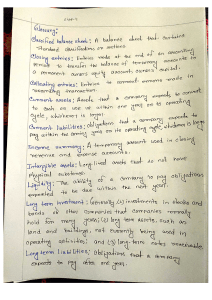 Glossary:
Classified balance sheet: A balance sheet that contains
standard classifications or sections
Closing entries: Entries made at the end of an accounting
period to transfer the balances of temporary accounts to
a permanent owner's equity account, owner's capital.
Correcting entries: Entries to correct errors made in
recording transactions
Current assets: Assets that a company expects to convert
to cash or use up within one year or its operating
cycle, whichever is longer
Current liabilities: obligations that a company expects to
pay within the coming year or its operating cycle, whichever is longer
Income summary: A temporary account used in closing
revenue and expense accounts.
Intangible assets: Long lived assets that do not have
physical substance.
Liquidity: The ability of a company to pay obligations
expected to be due within the next year.
Long term investment: Generally, (1) investments in stocks and
bonds of other companies that companies normally
hold for many years; (2) long term assets, such as
land and buildings, not currently being used in
operating activities; and (3) long-term notes receivable.
Long term liabilities: obligations that a company
expects to pay after one year.